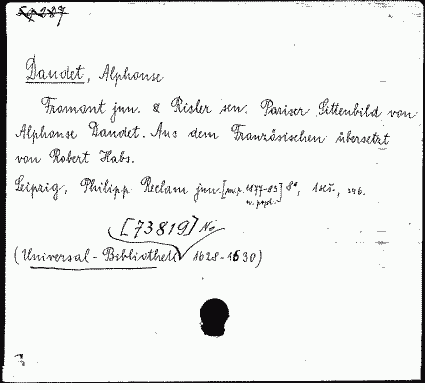 Daudet, Alphonse
Fromont jun. & Risler sen. Pariser Sittenbild von
Alphonse Daudet. Aus dem Französischen übersetzt
von Robert Habs.
Leipzig, Philipp Reclam jun. 8°,
[73819] No
(Universal-Bibliothek 1628-1630)